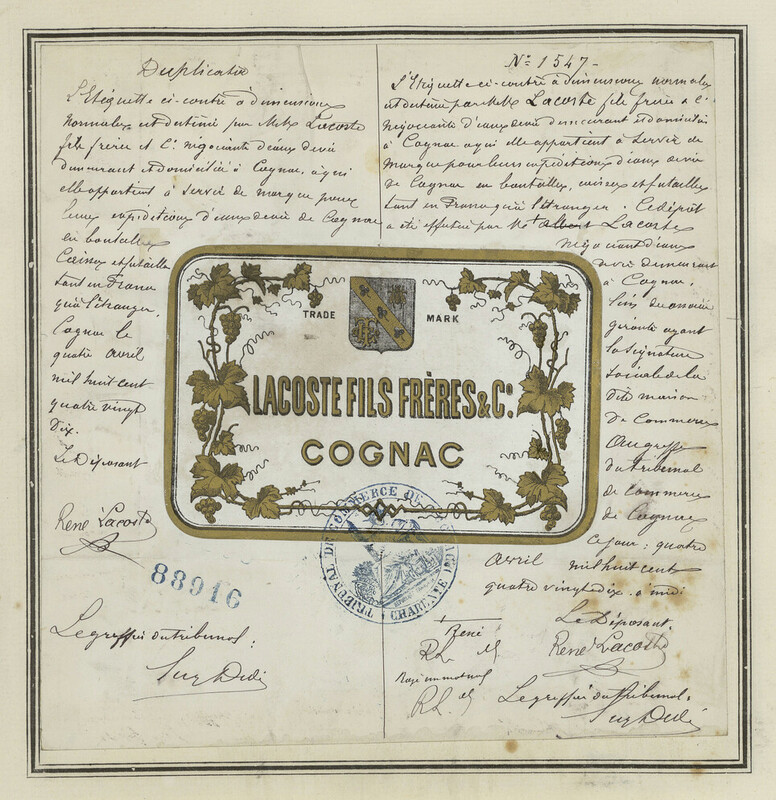 Duplicata
L'Etiquette ci-contre à dimensions
normales est destinée par MM. Lacoste
fils frères et Cie négociants d'eaux de vie
demeurant et domiciliés à Cognac, à qui
elle appartient à servir de marque pour
leurs expéditions d'eaux de vie de Cognac
en bouteilles
Caisses et futailles
tant en France
qu'à l'étranger.
Cognac le
quatre avril
mil huit cent
quatre vingt
dix.
Le Déposant
René Lacoste
88916
Le greffier du tribunal:
No 1547-
L'Etiquette ci-contre à dimensions normales
est destinée par MM. Lacoste fils frères & Cie
négociants d'eaux de vie demeurant et domiciliés
à Cognac à qui elle appartient à servir de
marque pour leurs expéditions d'eaux de vie
de Cognac en bouteilles, caisses et futailles
tant en France qu'à l'étranger. Ce dépôt
a été effectué par Mr Albert Lacoste
négociant d'eaux
de vie demeurant
à Cognac,
l'un des associés
gérants ayant
la signature
sociale de la
dite maison
de Commerce
Au greffe
du tribunal
de commerce
de Cognac
ce jour: quatre
avril mil huit cent
quatre vingt dix à midi
Le Déposant.
René Lacoste
Le greffier du Tribunal.
+ René
RL
Rayé un mot nul
RL
TRADE MARK
LACOSTE FILS FRÈRES & Co.
COGNAC
TRIBUNAL DE COMMERCE DE COGNAC
CHARENTE